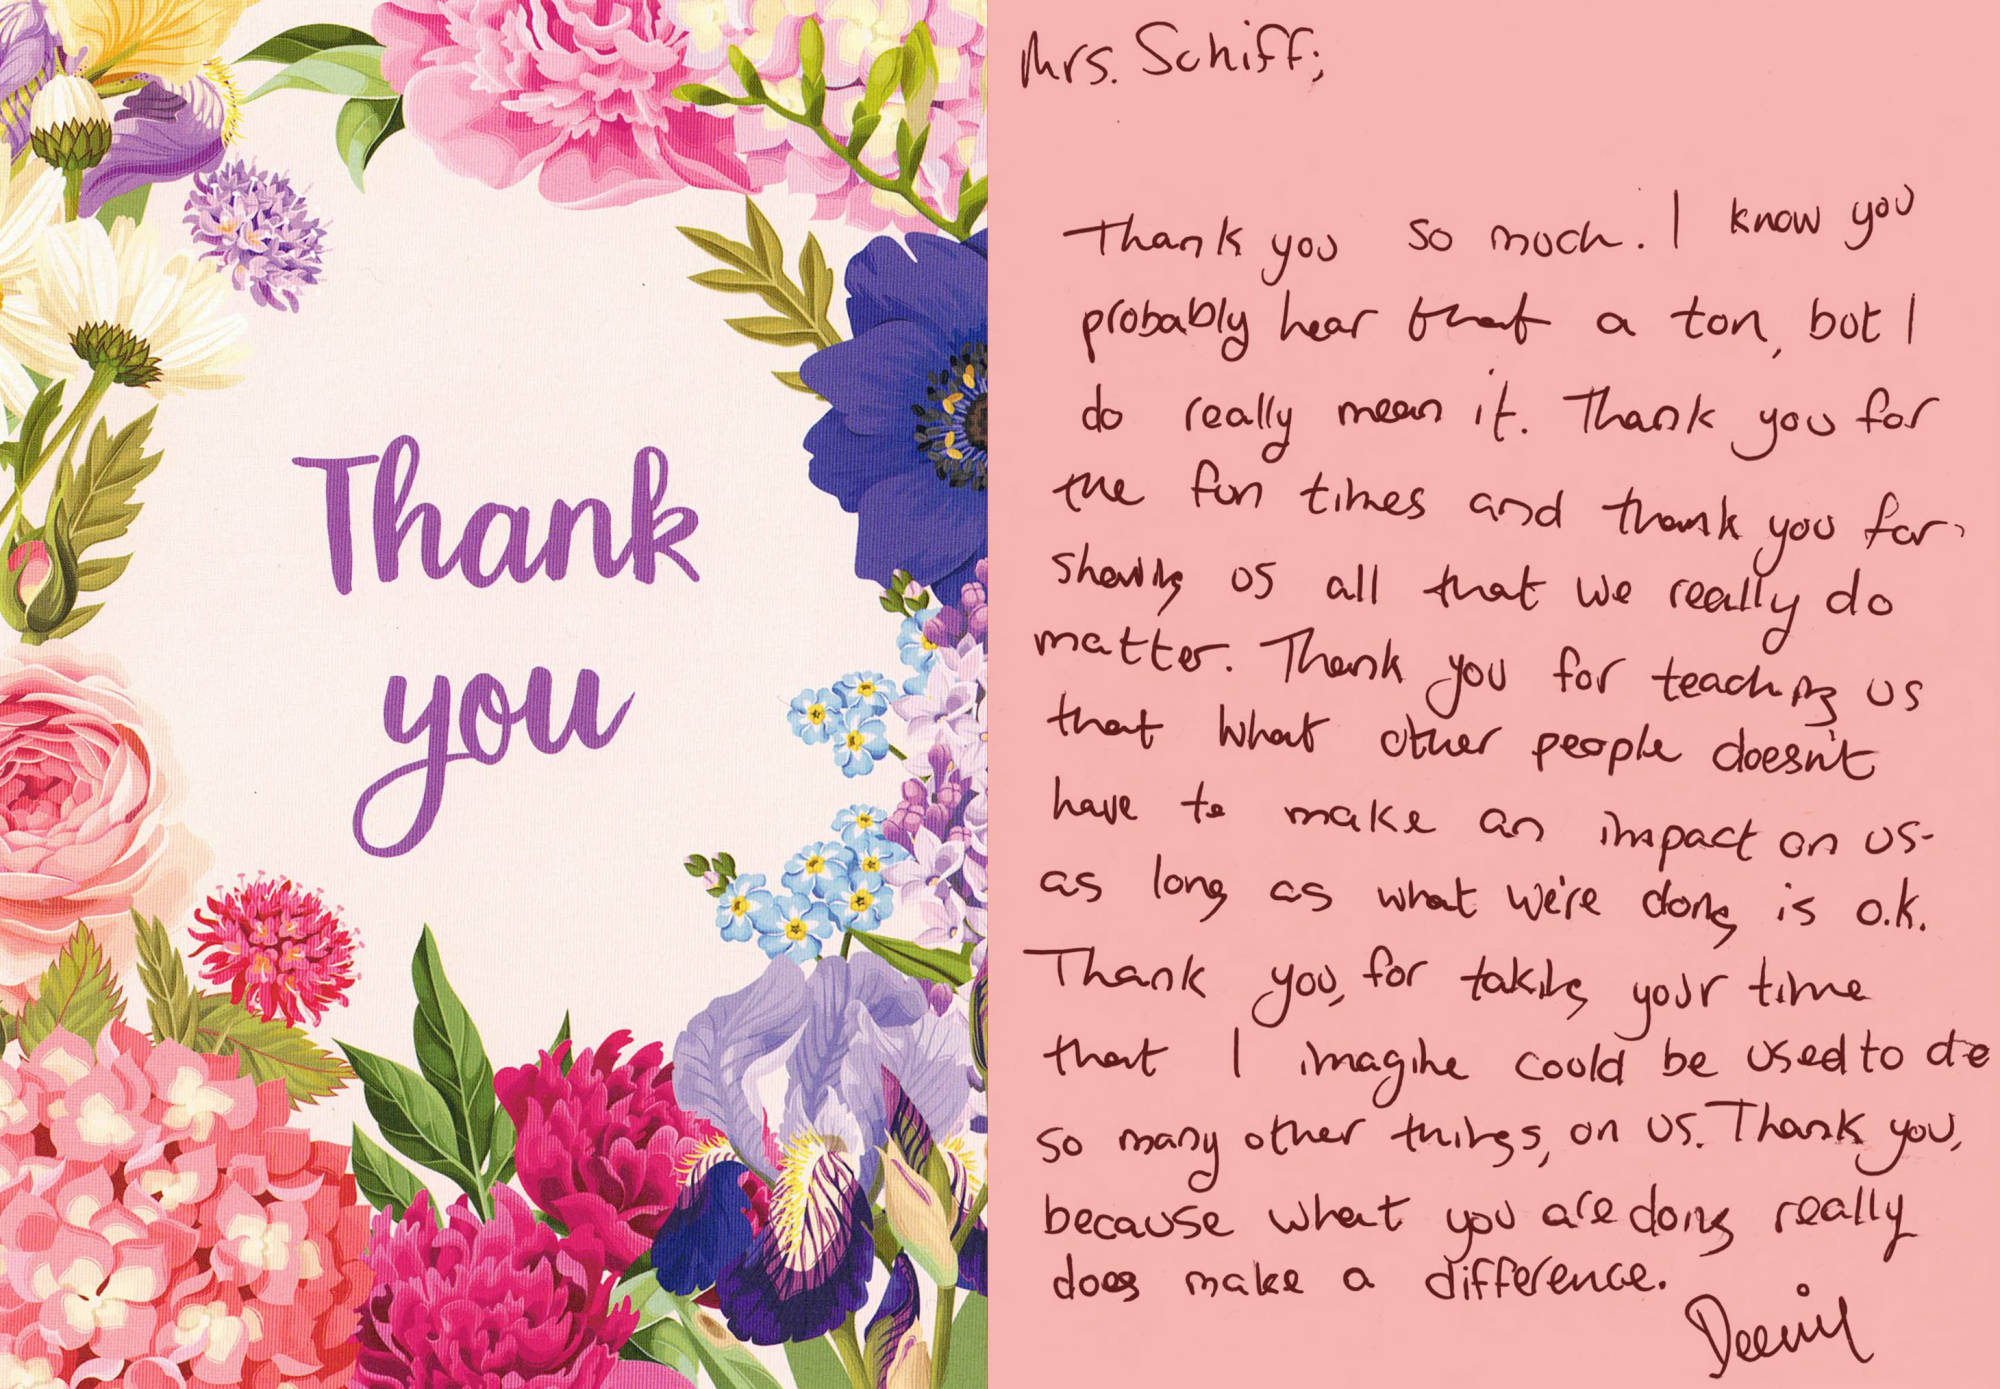 Thank
you
Mrs. Schiff;
Thank you so much. I know you
probably hear that a ton, but I
do really mean it. Thank you for
the fun times and thank you for
showing us all that we really do
matter. Thank you for teaching us
that what other people doesn't
have to make an impact on us-
as long as what we're doing is o.k.
Thank you, for taking your time
that I imagine could be used to do
so many other things, on us. Thank you,
because what you are doing really
does make a difference.